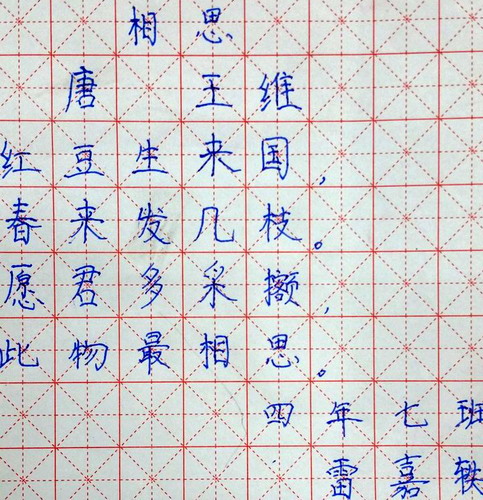 相思
唐 王维
红豆生来国，
春来发几枝。
愿君多采撷，
此物最相思。
四年七班
雷嘉轶